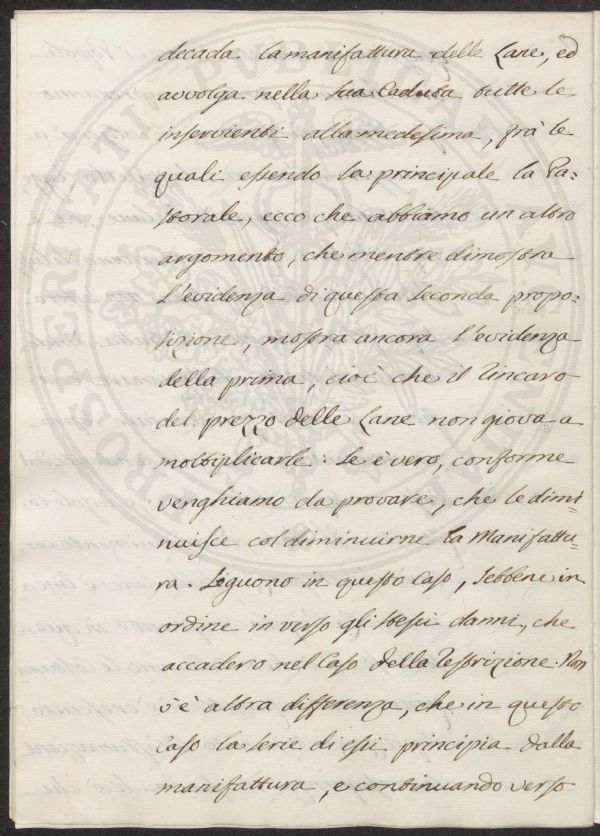 decada la manifattura delle Lane, ed
avvolga nella sua Caduta tutte le
inservienti alla medesima, frà le
quali essendo la principale la Pa=
storale, ecco che abbiamo un altro
argomento, che mentre dimostra
l'evidenza di questa seconda propo=
sizione, mostra ancora l'evidenza
della prima, cioè che il Rincaro
del prezzo delle Lane non giova a
moltiplicarle: Se è vero, conforme
venghiamo da provare, che le dimi=
nuisce col diminuirne la Manifattu=
ra. Seguono in questo Caso, sebbene in
ordine inverso gli stessi danni, che
accadero nel Caso della Restrizione. Non
v'è altra differenza, che in questo
Caso la serie di essi principia dalla
manifattura, e continuando verso